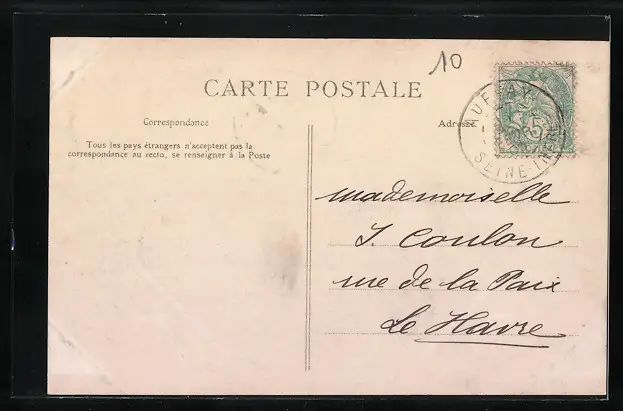 10
CARTE POSTALE
Correspondance
Adresse
Tous les pays étrangers n'acceptent pas la
correspondance au recto, se renseigner à la Poste
AUFFAY
SEINE-INFRE
5
Mademoiselle
J. Coulon
rue de la Paix
Le Havre